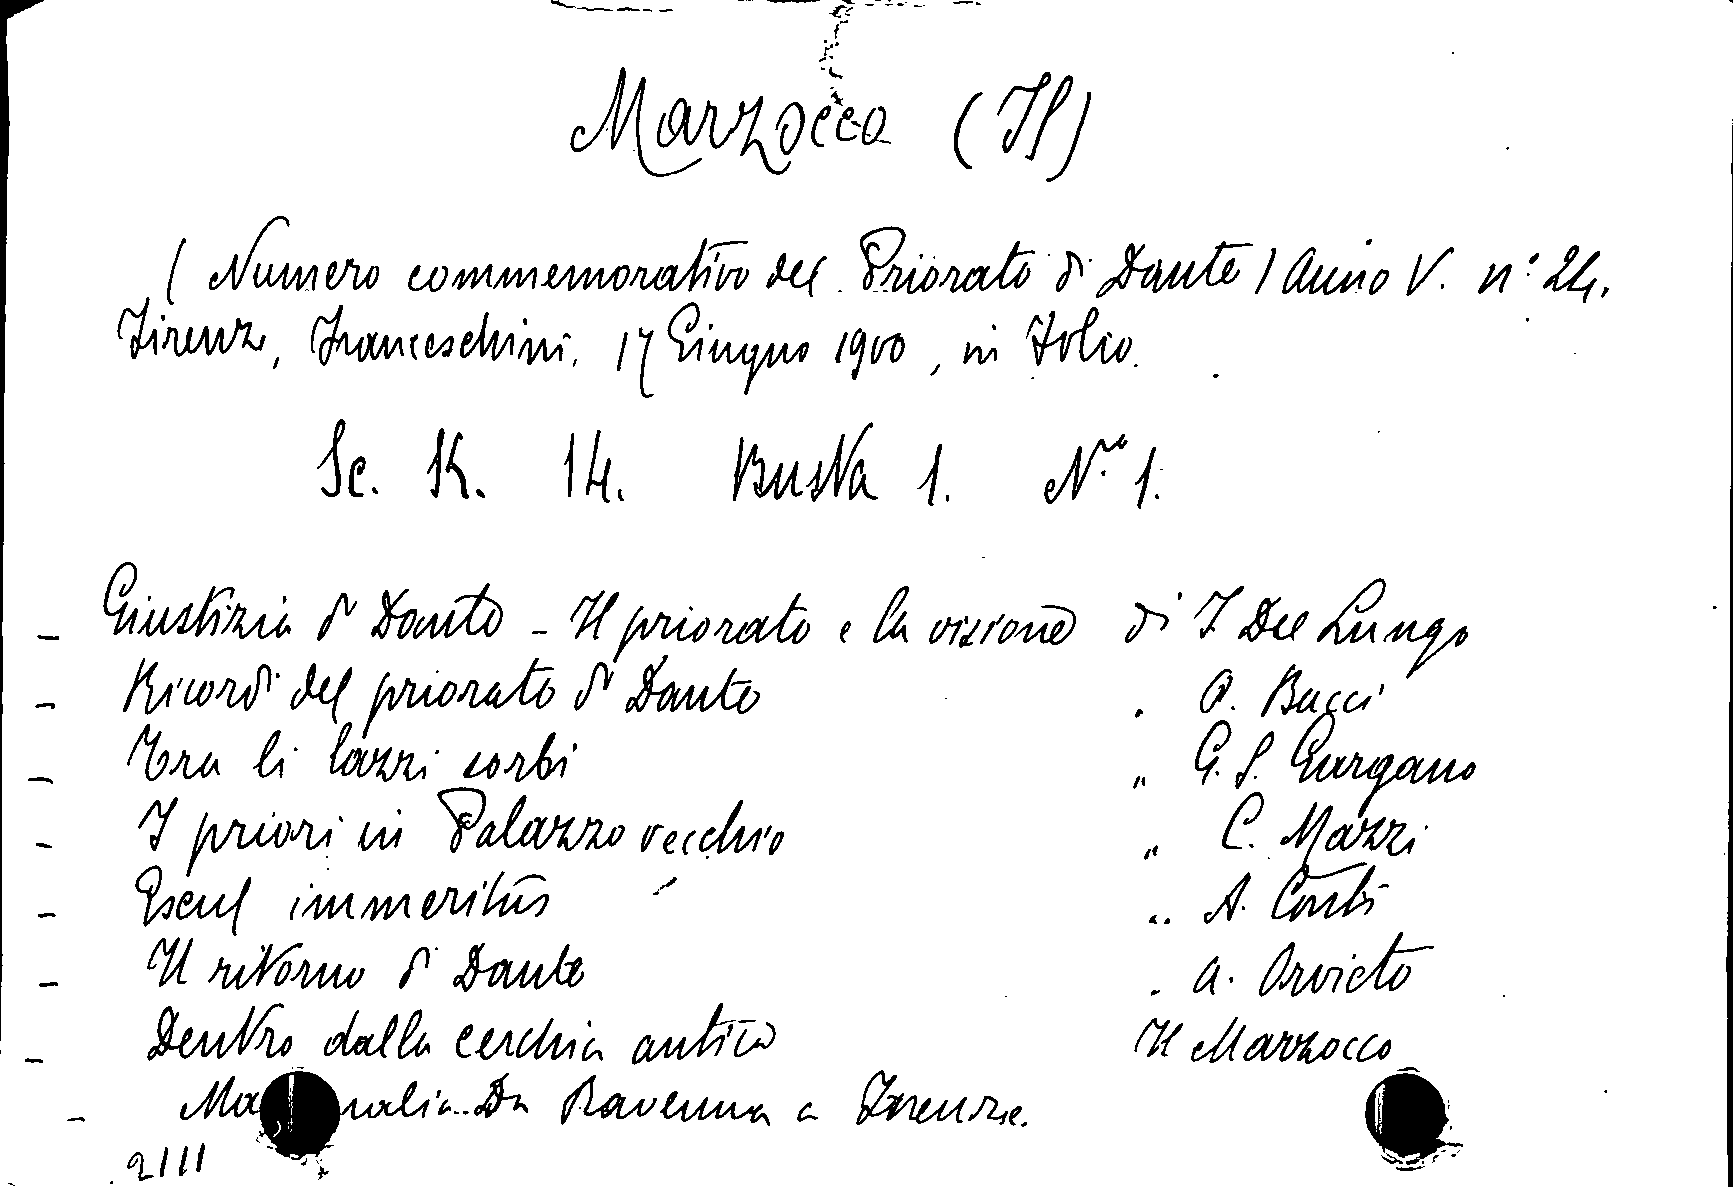 Marzocco (Il)
(Numero commemorativo del Priorato di Dante) Anno V. n° 24.
Firenze, Franceschini, 17 Giugno 1900, in folio.
Sc. K. 14. Busta 1. N.° 1.
– Giustizia di Dante – Il priorato e la visione di I Del Lungo
– Ricordi del priorato di Dante . O. Bacci
– Tra li lazzi sorbi " G. S. Gargano
– I priori in Palazzo vecchio " C. Mazzi
– Exul immeritus " A. Conti
– Il ritorno di Dante . A. Orvieto
– Dentro dalla cerchia antica Il Marzocco
– Ma nalia. Da Ravenna a Firenze.
2111